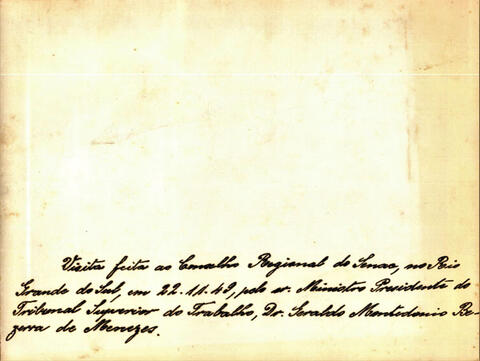 Visita feita ao Conselho Regional do Senac, no Rio
Grande do Sul, em 22-11-49, pelo sr. Ministro Presidente do
Tribunal Superior do Trabalho, Dr. Geraldo Montedonio Be-
zerra de Menezes.